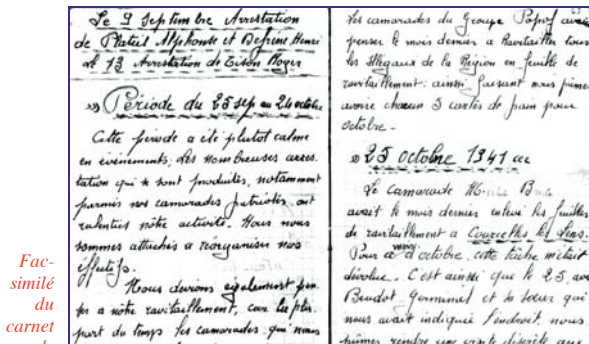 Le 9 Septembre Arrestation
de Plateil Alphonse et Defrene Henri
Le 13 Arrestation de Tison Roger
Période du 25 sep au 24 octobre
Cette période a été plutot calme
en evénements, les nombreuses arres
tation qui se sont produites, notamment
parmis nos camarades patriotes ont
ralenties nôtre activité. Nous nous
sommes attachés a réorganiser nos
éffectifs.
Nous devions egalement pen
ser a nôtre ravitaillement, car la plu
part du temps les camarades qui nous
les camarades du Groupe avaie
penser le mois dernier a Ravitailler tous
les illégaux de la Région en feuille de
ravitaillement: ainsi faisant nous pumes
avoir chacun 3 cartes de pain pour
octobre.
25 octobre 1941
Le camarade
avait le mois dernier enlevé les feuilles
de ravitaillement a Courcelles les Lens.
Pour octobre, cette tâche m'était
dévolue. C'est ainsi que le 25, ave
Beudot Germinal et sa soeur qui
nous avait indiqué l'endroit, nous
fûmes rendre une visite discrète aux
Fac-
similé
du
carnet